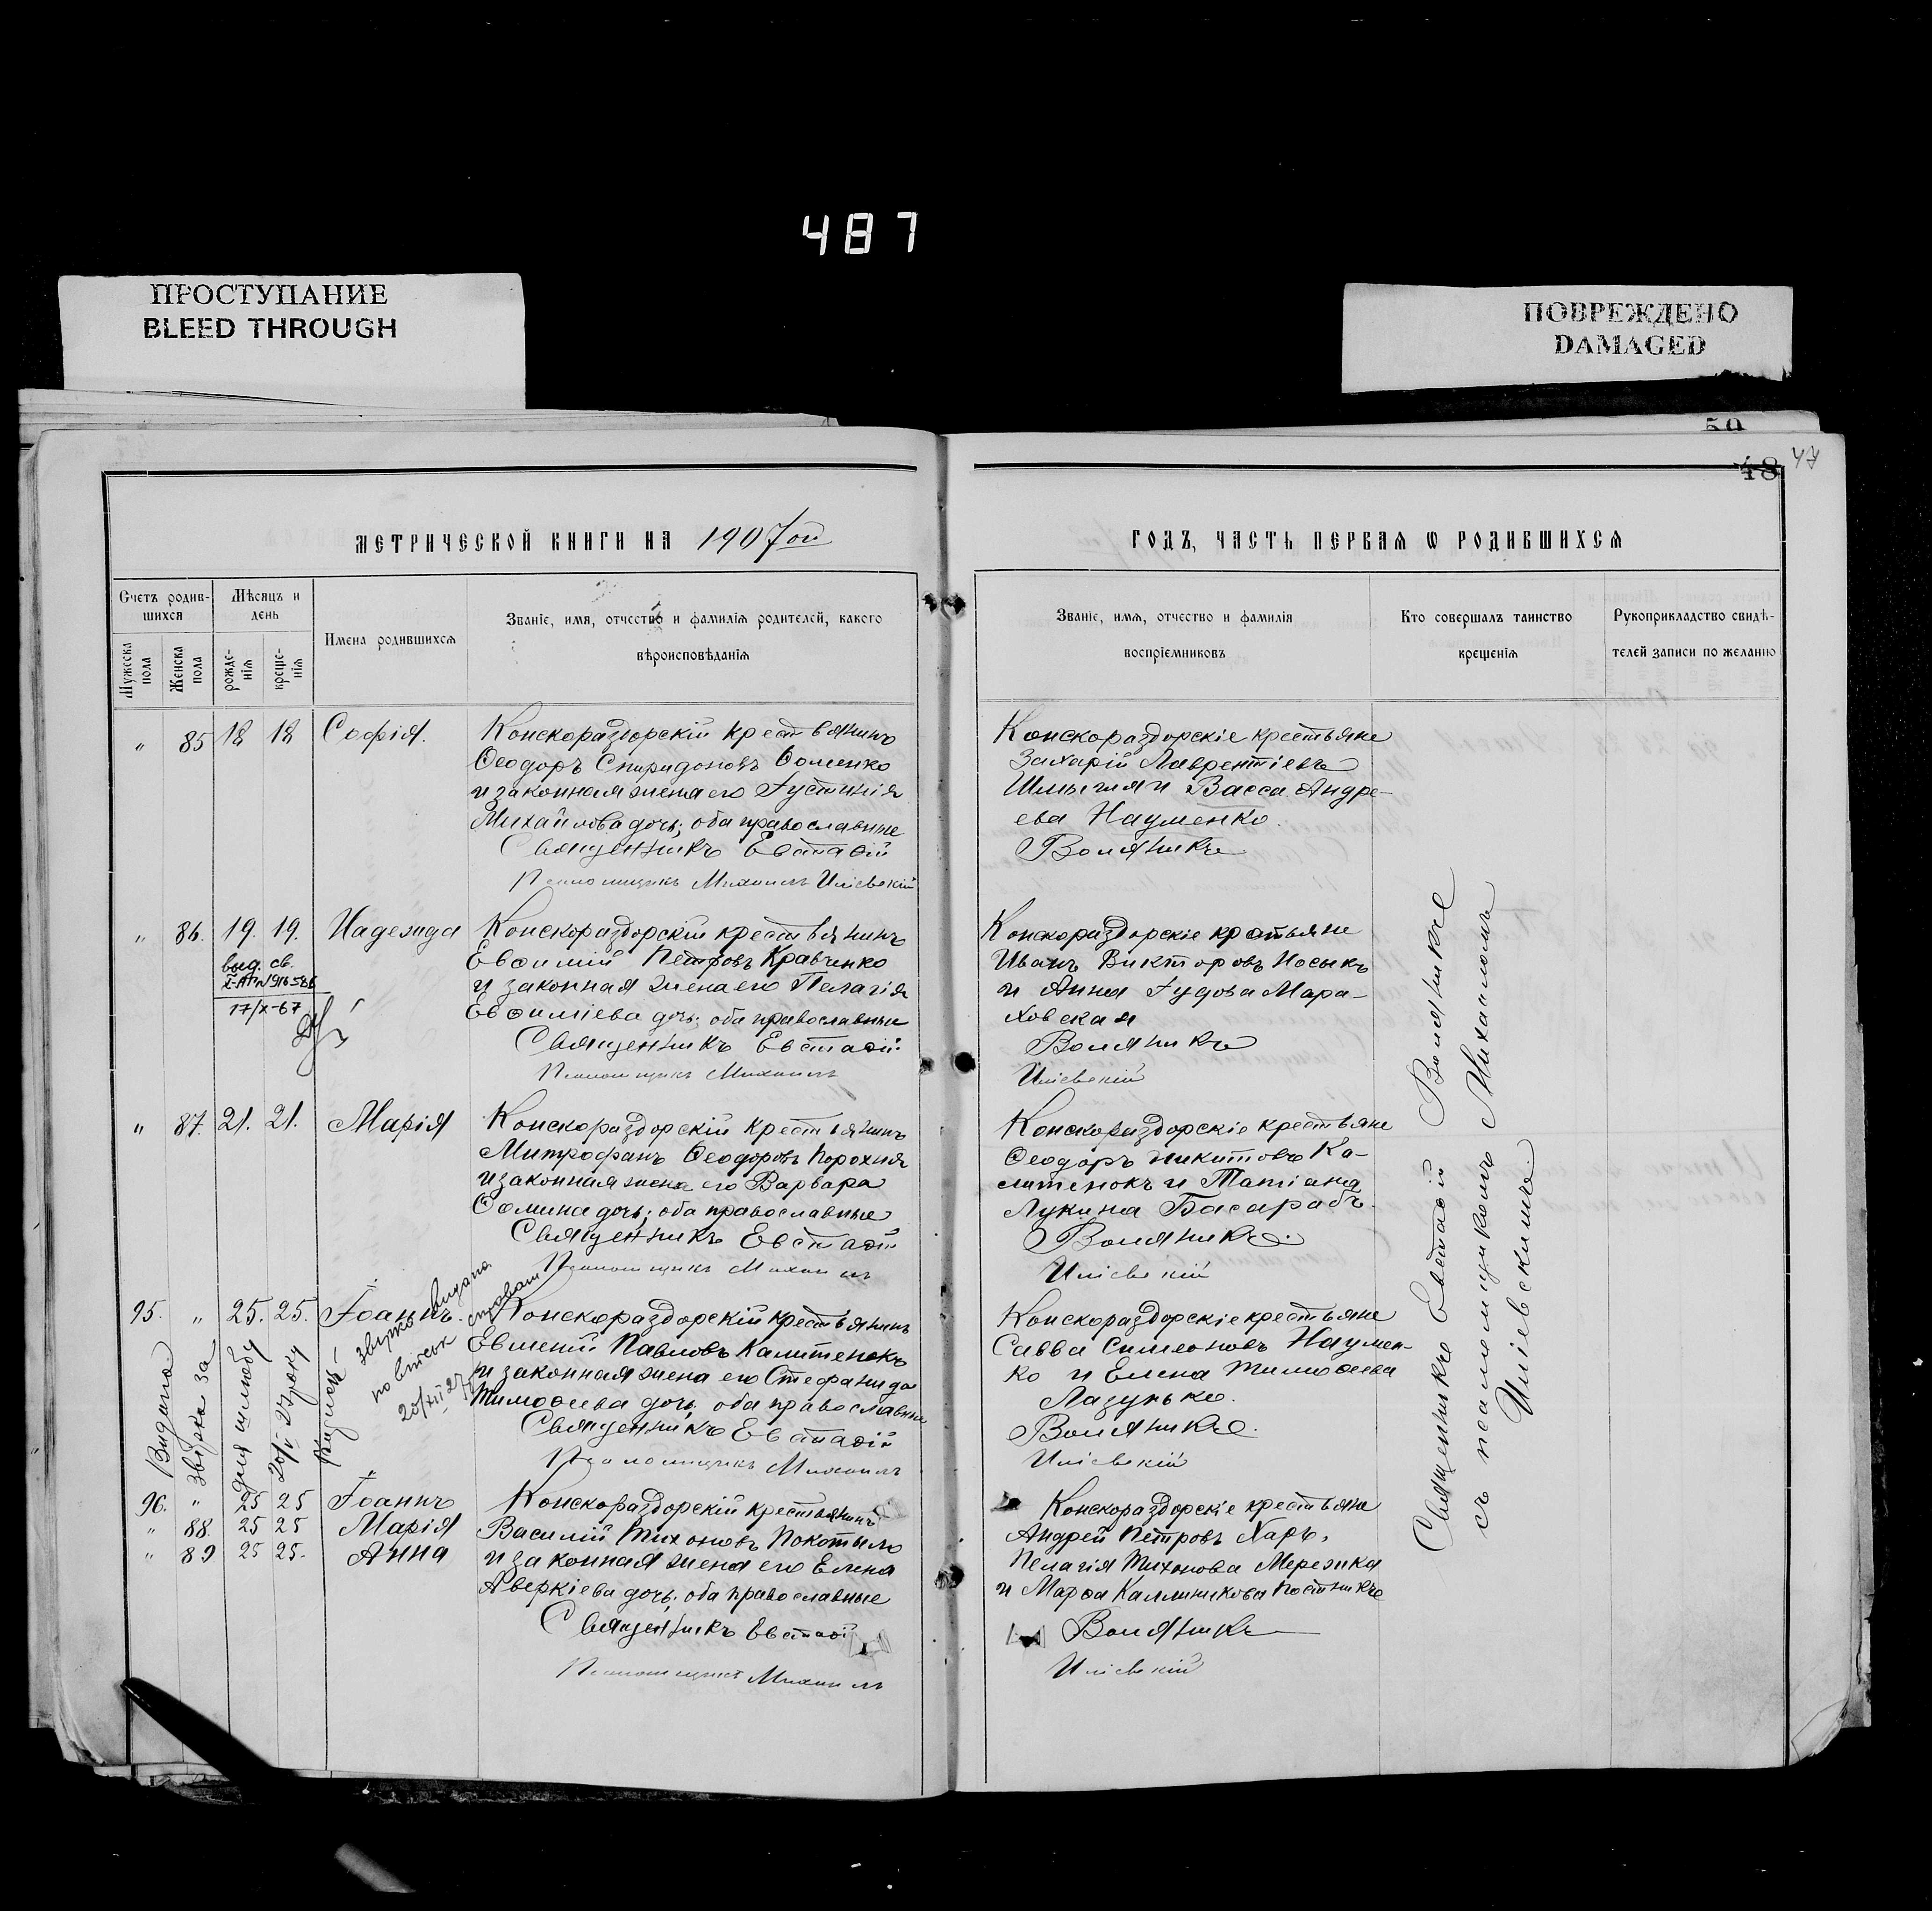 487
ПРОСТУПАНИЕ
BLEED THROUGH
ПОВРЕЖДЕНО
DAMAGED
50
48 47
МЕТРИЧЕСКОЙ КНИГИ НА 1907ой
ГОДЪ, ЧАСТЬ ПЕРВАЯ Ѡ РОДИВШИХСЯ
Счетъ родив-
шихся
Мѣсяцъ и
день
Мужеска
пола
Женска
пола
рожде-
нія
креще-
нія
Имена родившихся
Званіе, имя, отчество и фамилія родителей, какого
вѣроисповѣданія
Званіе, имя, отчество и фамилія
воспріемниковъ
Кто совершалъ таинство
крещенія
Рукоприкладство свидѣ-
телей записи по желанію
" 85 18 18 Софія.
Конскораздорскій крестьянинъ
Ѳеодоръ Спиридоновъ Ѳоменко
и законная жена его Іустинія
Михайлова дочь; оба православные
Священникъ Евстаѳій
Псаломщикъ Михаилъ Иліевскій
Конскораздорскіе крестьяне
Захарій Лаврентіевъ
Шмыгля и Васса Андре-
ева Науменко.
Воляникъ
" 86. 19. 19. Надежда
выд. св.
17/X-67
Конскораздорскій крестьянинъ
Евѳимій Петровъ Кравченко
и законная жена его Пелагія
Евѳиміева дочь; оба православные
Священникъ Евстаѳій
Псаломщикъ Михаилъ
Конскораздорскіе крестьяне
Иванъ Викторовъ Носыкъ
и Анна Іудова Мара-
ховская
Воляникъ
Иліевскій
" 87. 21. 21. Марія
Конскораздорскій крестьянинъ
Митрофанъ Ѳеодоровъ Порохня
и законная жена его Варвара
Ѳомина дочь; оба православные
Священникъ Евстаѳій
Псаломщикъ Михаилъ
Конскораздорскіе крестьяне
Ѳеодоръ Никитовъ Ка-
литенокъ и Татіана
Лукина Басарабъ.
Воляникъ.
Иліевскій
95. " 25. 25. Іоаннъ.
Видано
звірка за
для шлюбу
20/I-27 року
видана
звірка
по військ справам
20/XII 27
Конскораздорскій крестьянинъ
Евмений Павловъ Калитенокъ
и законная жена его Стефанида
Тимоѳеева дочь, оба православные
Священникъ Евстаѳій
Псаломщикъ Михаилъ
Конскораздорскіе крестьяне
Савва Симеоновъ Наумен-
ко и Елена Тимоѳеева
Лазунько.
Воляникъ.
Иліевскій
96. " 25 25 Іоаннъ
" 88. 25 25 Марія
" 89 25 25. Анна
Конскораздорскій крестьянинъ
Василій Тихоновъ Покотыло
и законная жена его Елена
Аверкіева дочь; оба православные
Священникъ Евстаѳій
Псаломщикъ Михаилъ
Конскораздорскіе крестьяне
Андрей Петровъ Харь,
Пелагія Тихонова Мережка
и Марѳа Каллиникова Постникъ
Воляникъ
Иліевскій
Священникъ Евстаѳій Воляникъ
съ псаломщикомъ Михаиломъ
Иліевскимъ.